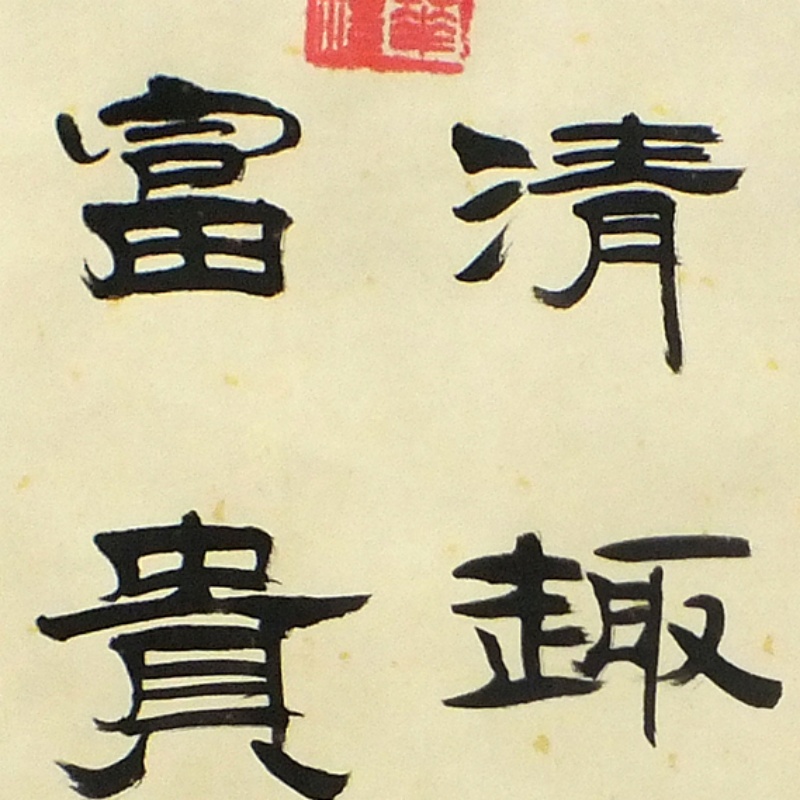 清趣
富貴